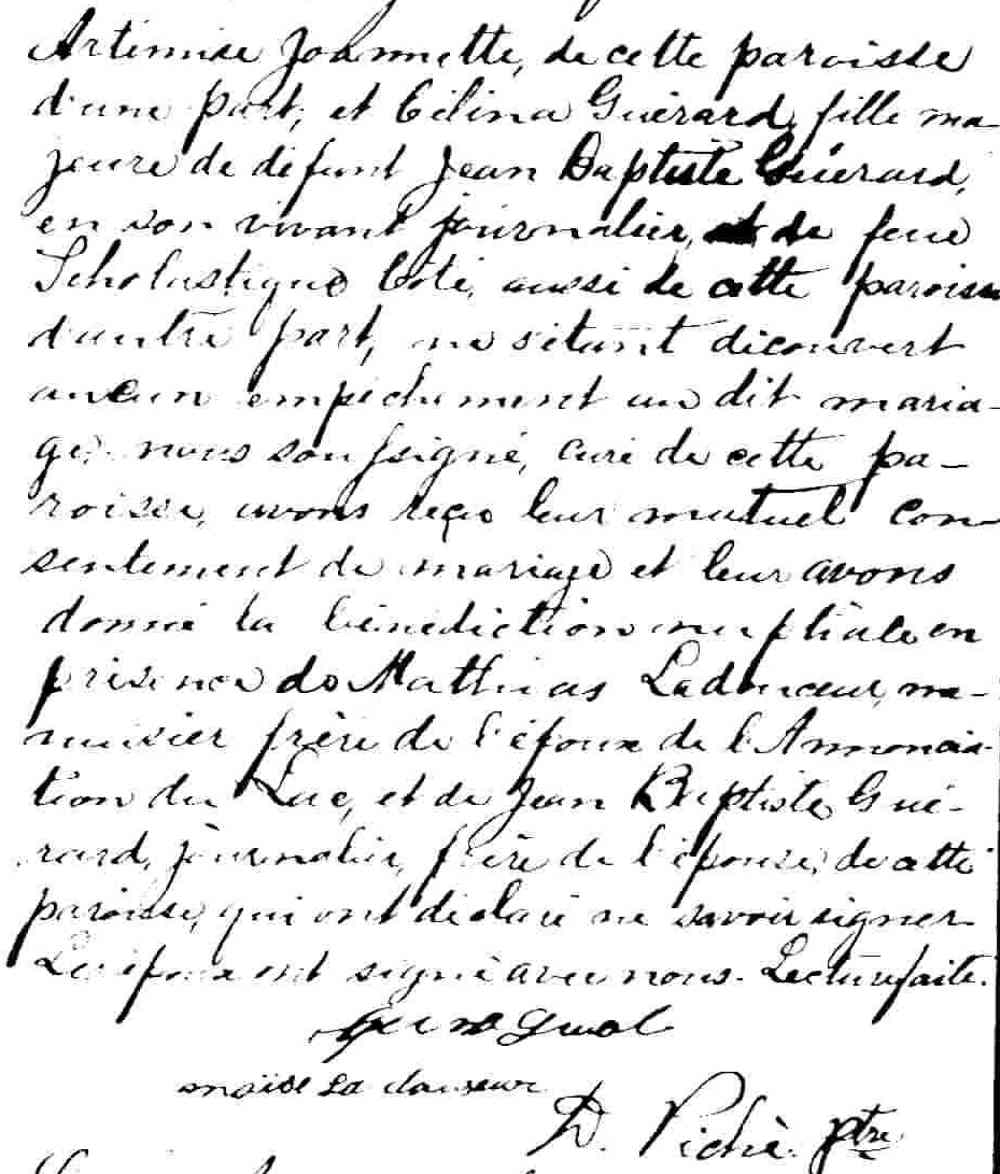 Artémise Joannette, de cette paroisse
d'une part, et Célina Guérard, fille ma-
jeure de défunt Jean Baptiste Guérard,
en son vivant journalier, et de feue
Scholastique Coté, aussi de cette paroisse
d'autre part, ne s'étant découvert
aucun empêchement au dit maria-
ge, nous soussigné, curé de cette pa-
roisse, avons reçu leur mutuel con
sentement de mariage et leur avons
donné la bénédiction nuptiale en
présence de Mathias Ladouceur, me-
nuisier frère de l'époux de l'Annoncia-
tion du Lac, et de Jean Baptiste Gué-
rard, journalier, frère de l'épouse, de cette
paroisse, qui ont déclaré ne savoir signer
Les époux ont signé avec nous. Lecture faite.
moise La douseur
D. Piché. ptre